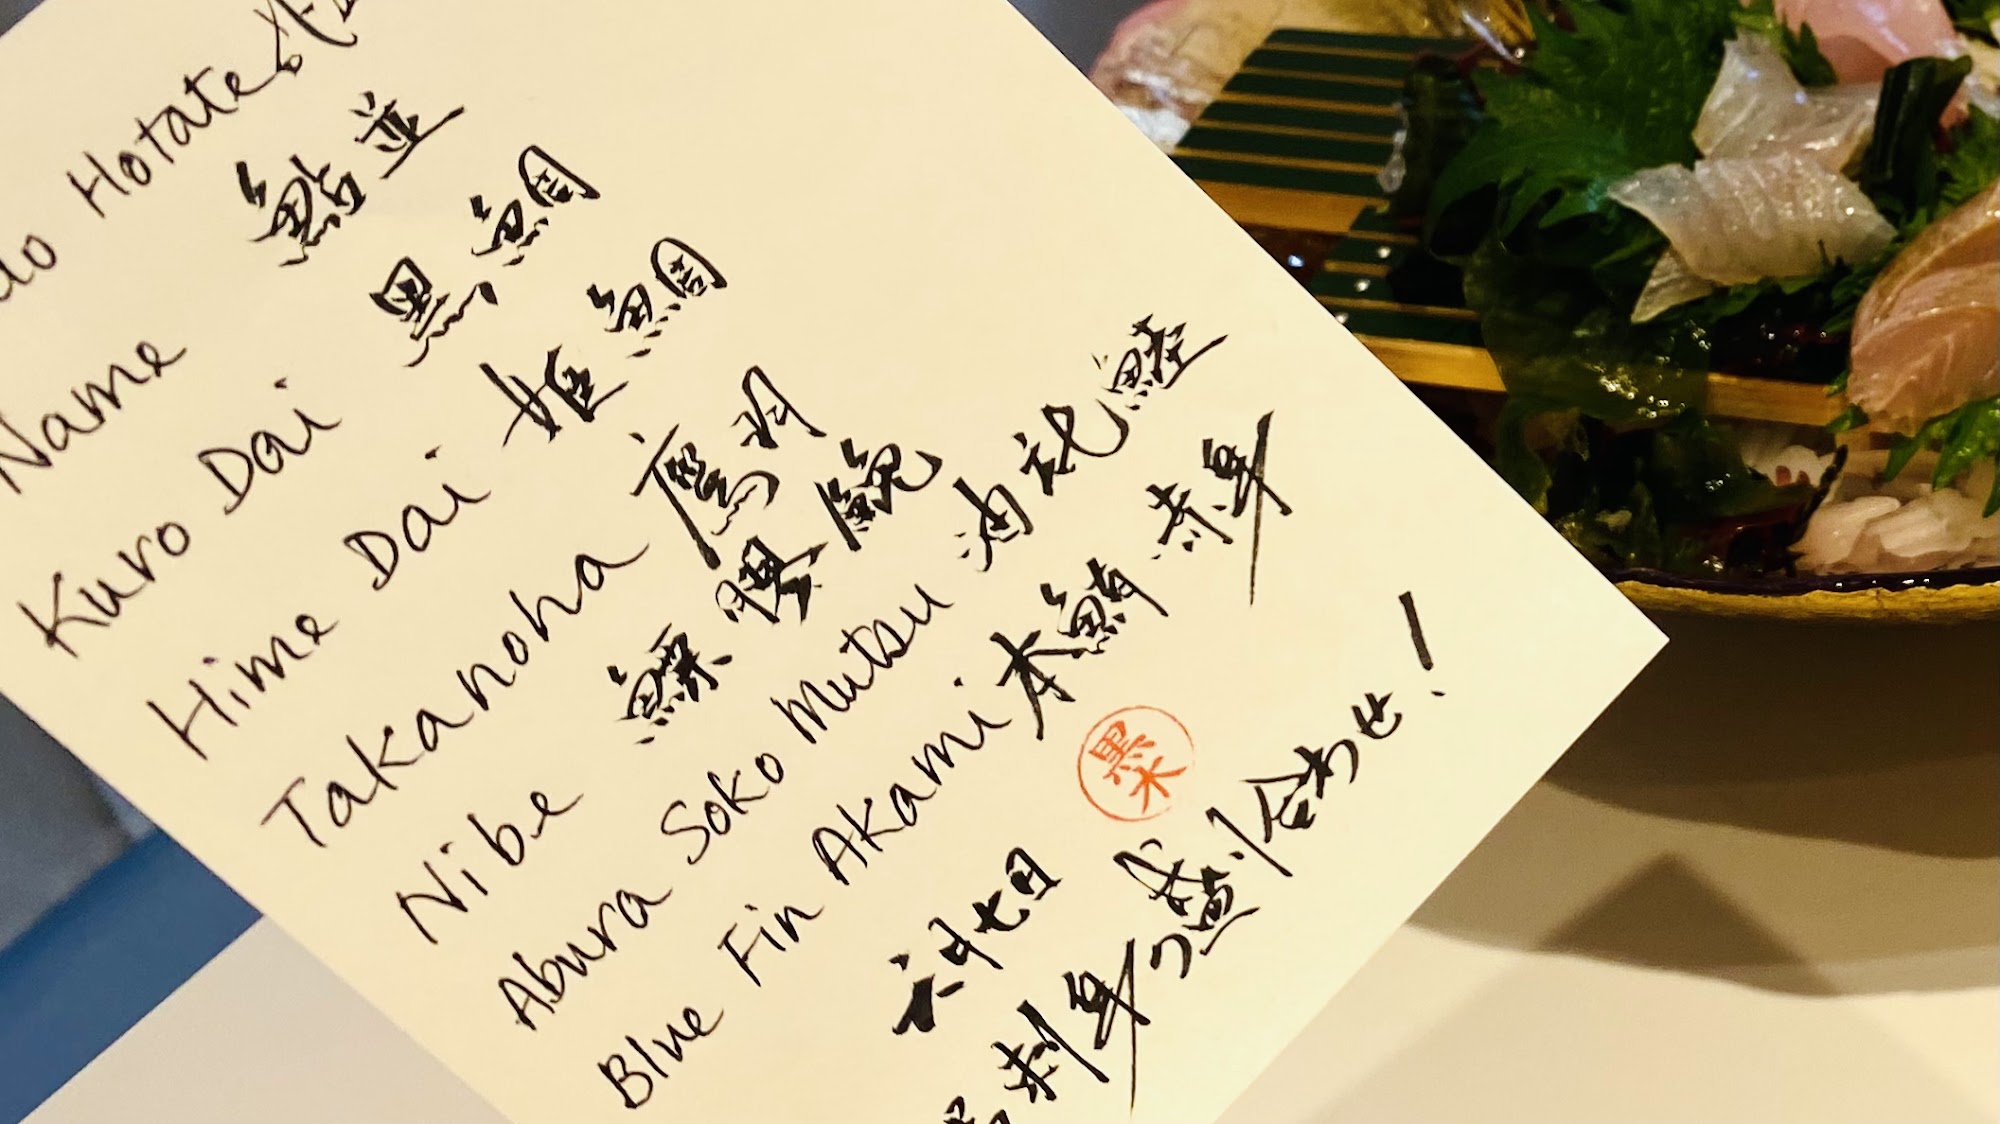 Hotate
Name 鮎並
Kuro Dai 黒鯛
Hime Dai 姫鯛
Takanoha 鷹羽
Nibe 鰾膠鮸
Abura Soko Mutsu
Blue Fin Akami 本鮪 赤身
黒木
六月七日
刺身の盛り合わせ!